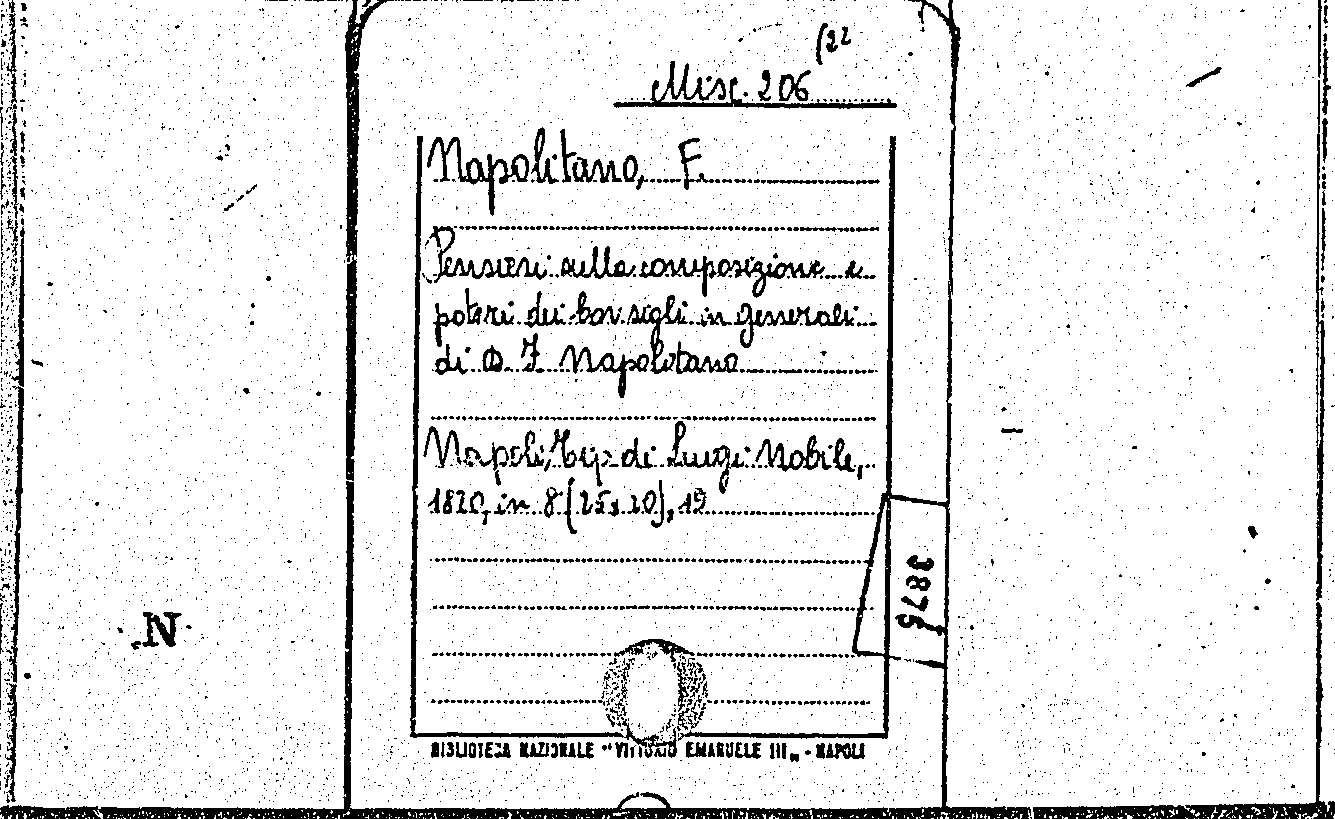 (22
Misc. 206
Napolitano, F.
Pensieri sulla composizione e
poteri dei Consigli in generale
di D. F. Napolitano
Napoli, Tip. di Luigi Nobile,
1820, in 8° (25x20), 19
3876
N
BIBLIOTECA NAZIONALE "VITTORIO EMANUELE III„ - NAPOLI